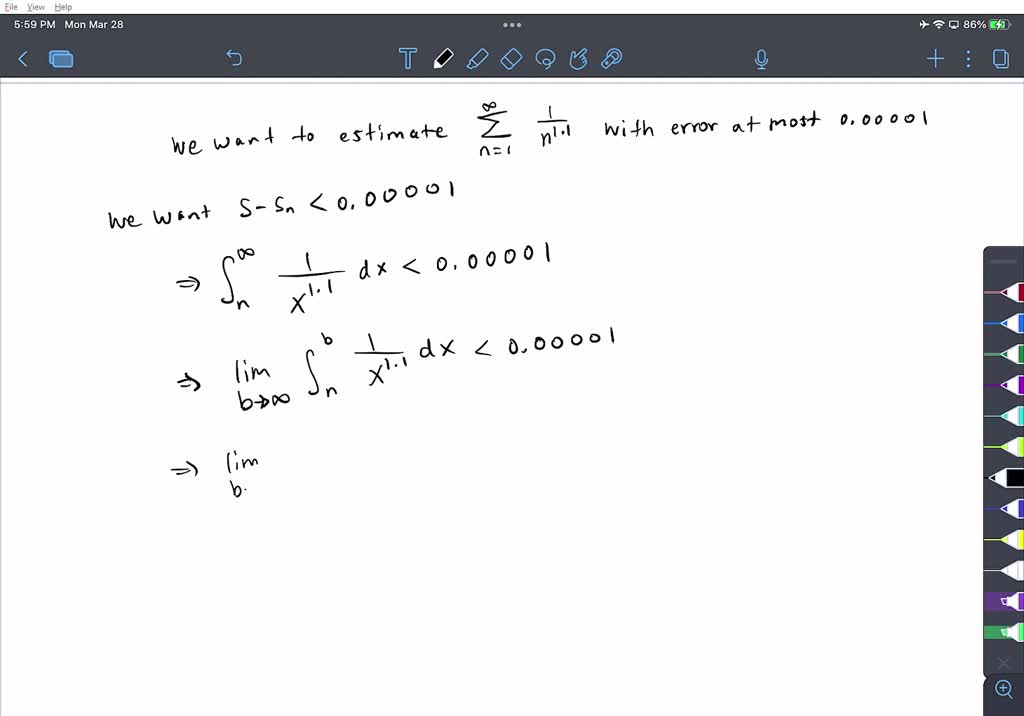 File View Help
5:59 PM Mon Mar 28 86%
T
We want to estimate ∞ Σ n=1 1/n^1.1 with error at most 0.00001
We want S-Sn < 0.00001
⇒ ∫_n^∞ 1/x^1.1 dx < 0.00001
⇒ lim b→∞ ∫_n^b 1/x^1.1 dx < 0.00001
⇒ lim b.